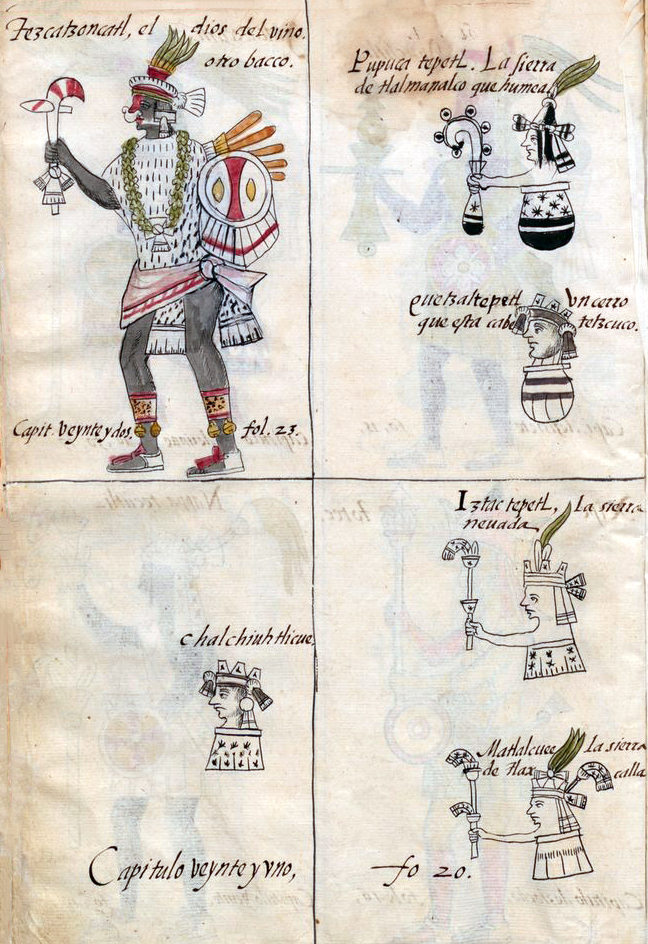 Tezcatzoncatl, el dios del vino.
otro bacco.
Capit. veynte y dos. fol. 23.
Pupuca tepetl. La sierra
de tlalmanalco que humea.
quetzaltepetl Vn cerro
que esta cabe tetzcuco.
Iztac tepetl, La sierra
neuada.
chalchiuhtlicue,
Matlalcuee La sierra
de tlax calla
Capitulo veynte y vno, fo 20.